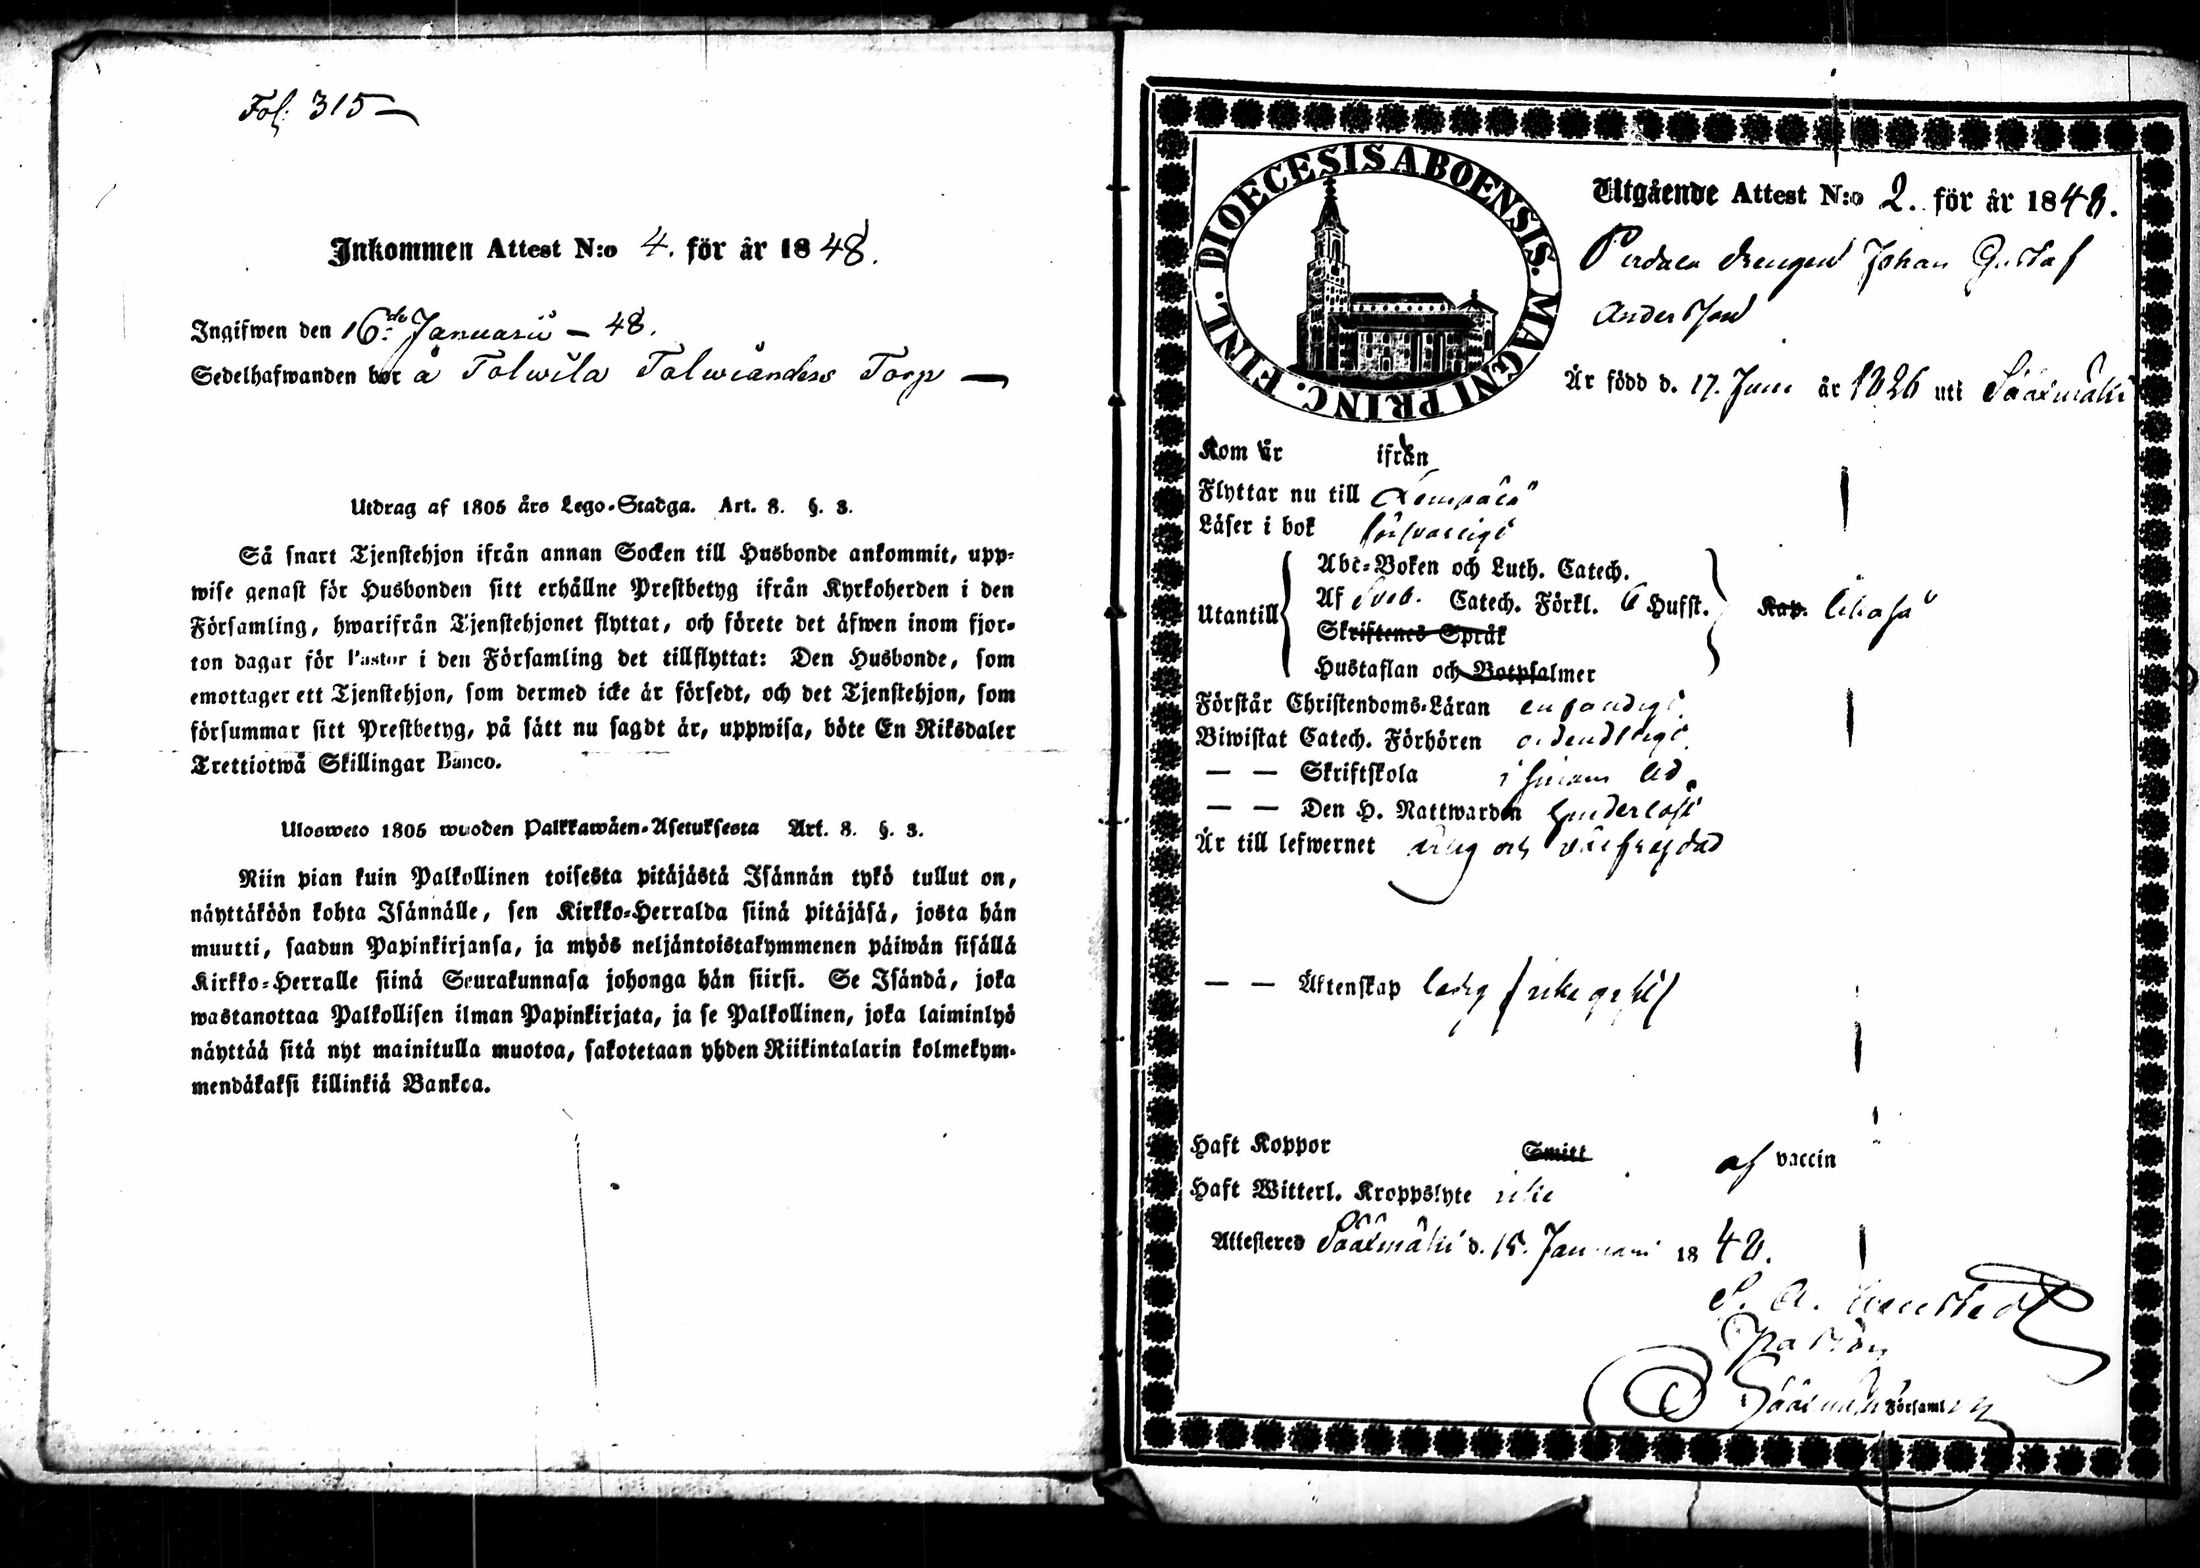 Fol: 315
Inkommen Attest N:o 4. för år 1848.
Ingifwen den 16de Januarii – 48.
Sedelhafwanden bor å Tolwila Tolwianders Torp —
Utdrag af 1805 års Lego-Stadga. Art. 8. §. 3.
Så snart Tjenstehjon ifrån annan Socken till Husbonde ankommit, upp-
wise genast för Husbonden sitt erhållne Prestbetyg ifrån Kyrkoherden i den
Församling, hwarifrån Tjenstehjonet flyttat, och förete det äfwen inom fjor-
ton dagar för Pastor i den Församling det tillflyttat: Den Husbonde, som
emottager ett Tjenstehjon, som dermed icke är försedt, och det Tjenstehjon, som
försummar sitt Prestbetyg, på sätt nu sagdt är, uppwisa, böte En Riksdaler
Trettiotwå Skillingar Banco.
Ulosweto 1805 wuoden Palkkawäen-Asetuksesta Art. 8. §. 3.
Niin pian kuin Palkollinen toisesta pitäjästä Isännän tykö tullut on,
näyttäköön kohta Isännälle, sen Kirkko-Herralda siinä pitäjäsä, josta hän
muutti, saadun Papinkirjansa, ja myös neljäntoistakymmenen päiwän sisällä
Kirkko-Herralle siinä Seurakunnasa johonga hän siirsi. Se Isändä, joka
wastanottaa Palkollisen ilman Papinkirjata, ja se Palkollinen, joka laiminlyö
näyttää sitä nyt mainitulla muotoa, sakotetaan yhden Riikintalarin kolmekym-
mendäkaksi killinkiä Bankoa.
DIOECESIS ABOENSIS. MAGNI PRINC. FINL.
Utgående Attest N:o 2. för år 1848.
drengen Johan Gustaf
Andersson
Är född d. 17. Juni år 1826 uti Sääxmäki
Kom år ifrån
Flyttar nu till Lempälä
Läser i bok försvarligt
Utantill
Abc-Boken och Luth. Catech.
Af Sveb. Catech. Förkl. 6 Hufst.
Skriftenes Språk
Hustaflan och Botpsalmer
Kap.
Förstår Christendoms-Läran enfaldigt
Biwistat Catech. Förhören ordentligt
— — Skriftskola i sinom tid
— — Den H. Nattwarden
Är till lefwernet ärlig och välfrejdad
— — Äktenskap ledig
Haft Koppor Smitt af vaccin
Haft Witterl. Kroppslyte icke
Attesteres Sääxmäki d. 15. Januari 1848.
S. A.
Pastor
Sääxmäki Församling